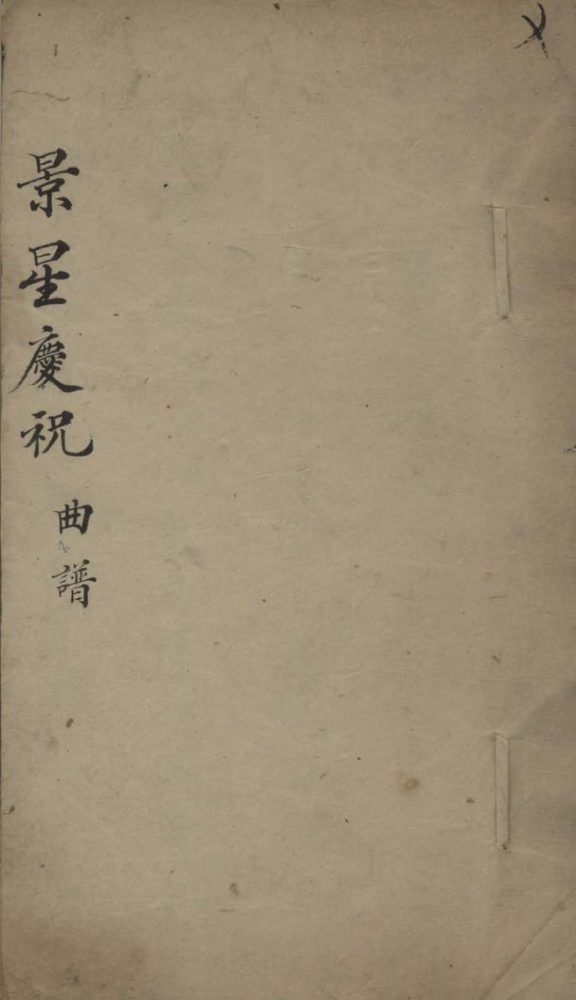 景星慶祝
曲譜